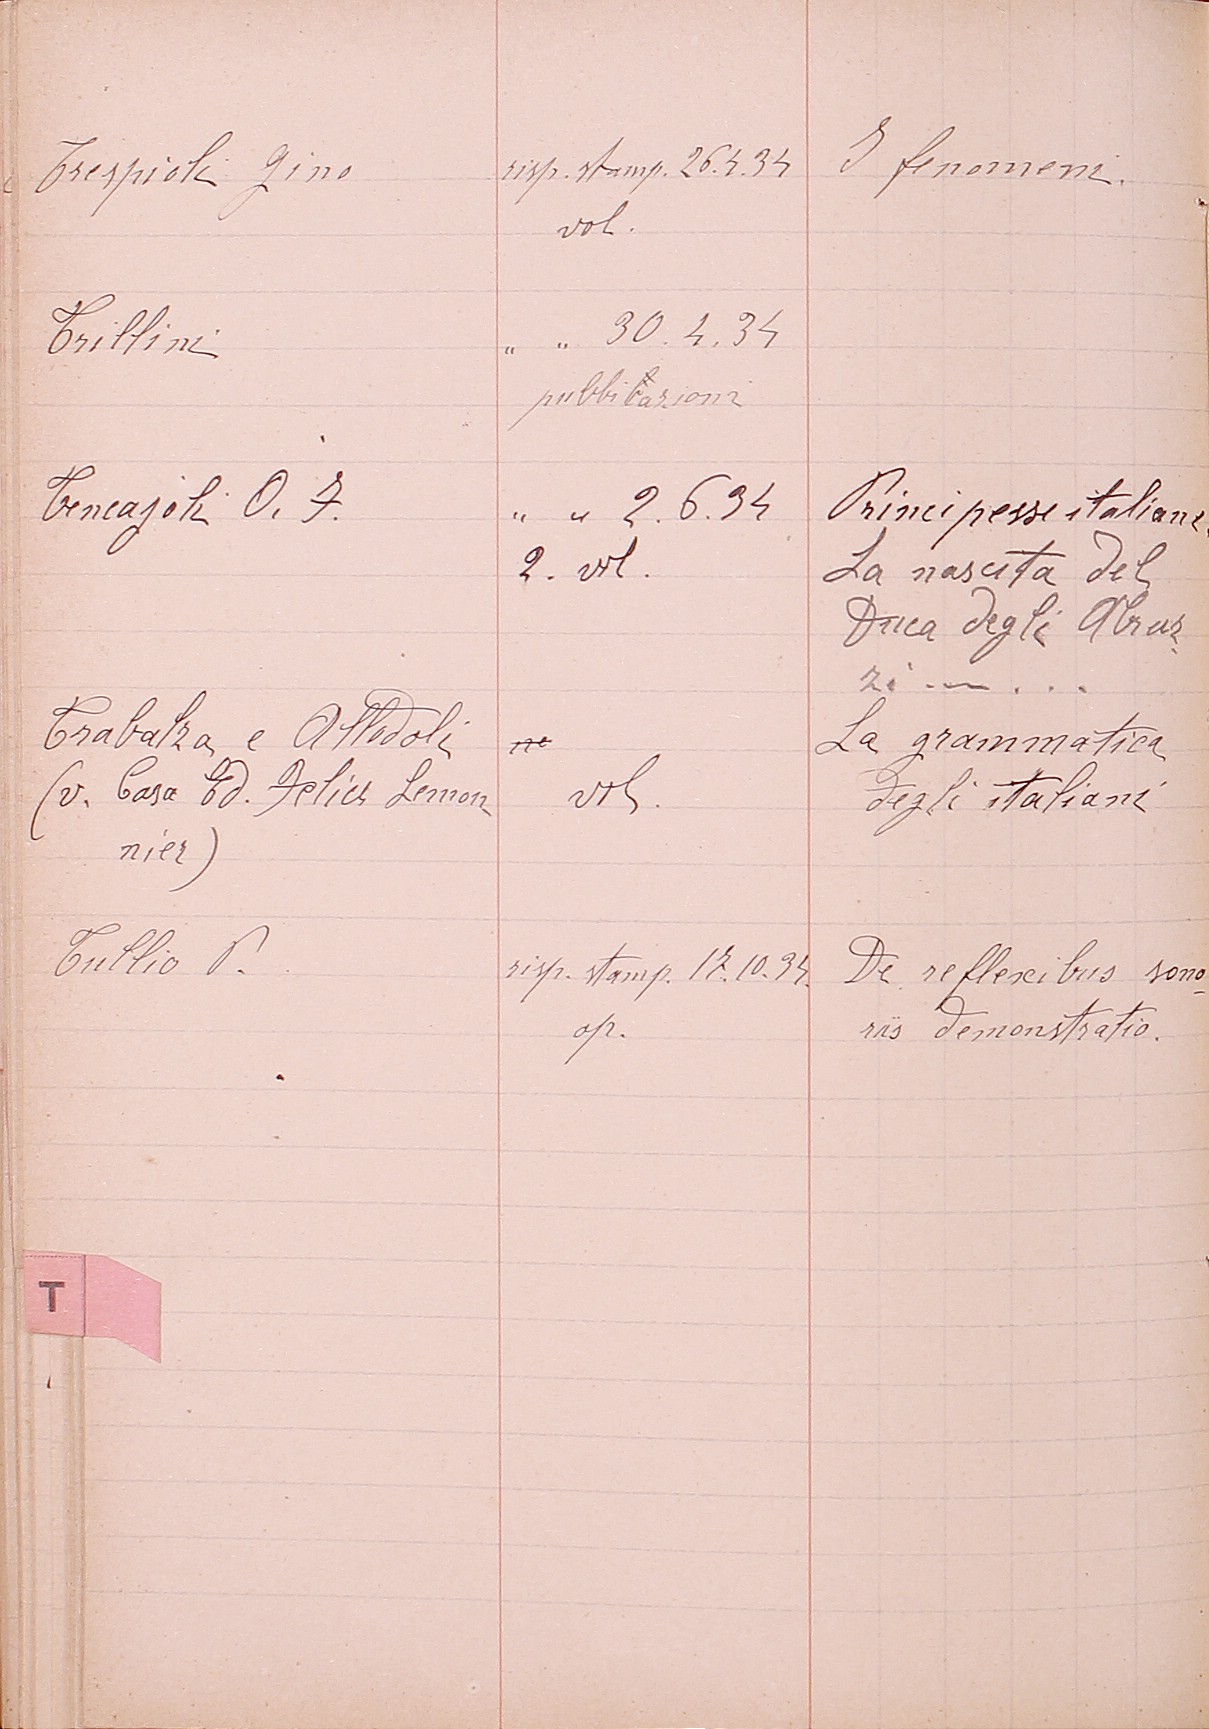 Trespioli Gino risp. stamp. 26.4.34 I fenomeni.
vol.
Trillini „ „ 30.4.34
pubblicazioni
Tencajoli O. F. „ „ 2.6.34 Principesse italiane.
2. vol. La nascita del
Duca degli Abruz-
zi — . . .
Trabalza e Allodoli ne La grammatica
(v. Casa Ed. Felice Lemon vol. degli italiani
nier)
Tullio P. risp. stamp. 17.10.34. De reflexibus sono-
op. riis demonstratio.
T